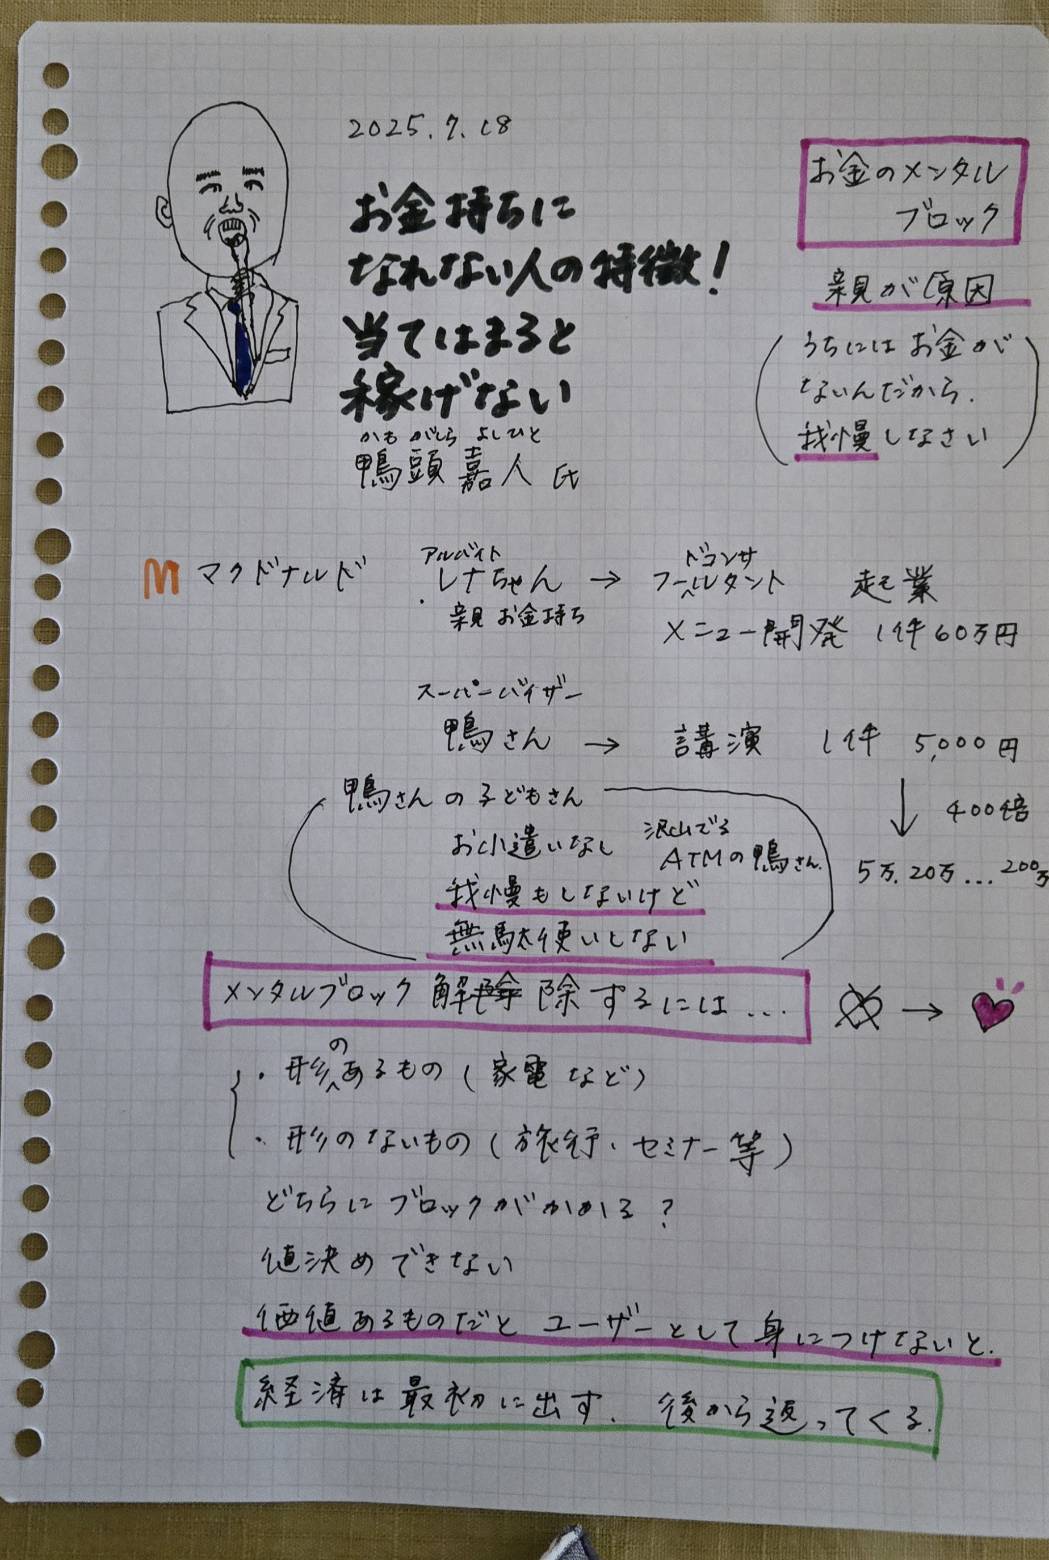 2025.7.18
お金持ちに
なれない人の特徴!
当てはまると
稼げない
かも がしら よしひと
鴨頭 嘉人 氏
お金のメンタル
ブロック
親が原因
うちにはお金が
ないんだから.
我慢しなさい
M マクドナルド
アルバイト
レナちゃん →
親 お金持ち
フードコンサルタント 起業
メニュー開発 1件60万円
スーパーバイザー
鴨さん → 講演 1件 5,000円
↓ 400倍
5万.20万...200万
鴨さんの子どもさん
お小遣いなし
沢山でる
ATMの鴨さん.
我慢もしないけど
無駄使いしない
メンタルブロック 解除するには...
・形のあるもの(家電など)
・形のないもの(旅行・セミナー等)
どちらにブロックがかかる?
値決めできない
価値あるものだと ユーザーとして身につけないと.
経済は最初に出す. 後から返ってくる.